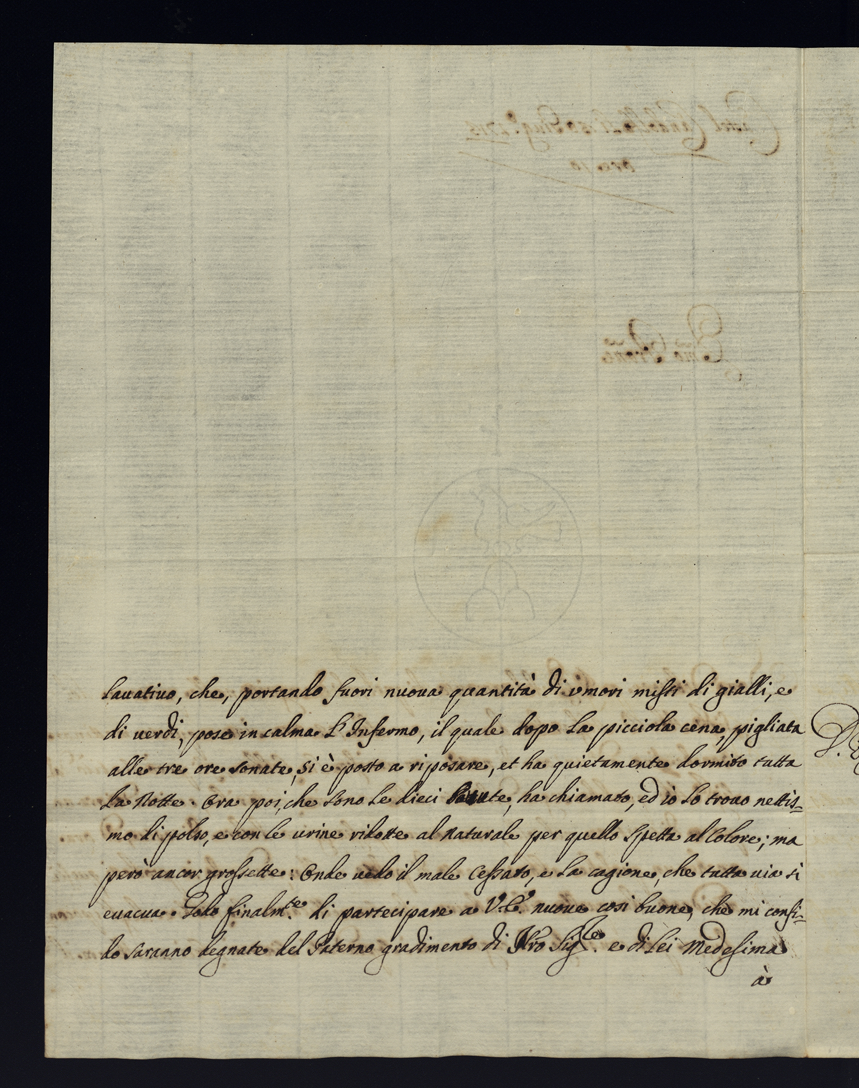 lavativo, che, portando fuori nuova quantità di umori misti di gialli, e
di verdi, pose in calma L'Infermo, il quale dopo La picciola cena, pigliata
alle tre ore sonate, si è posto a riposare, et ha quietamente dormito tutta
La Notte. Ora poi, che sono Le dieci ha chiamato, ed io Lo trovo nettis-
mo di polso, e con le urine ridotte al Naturale per quello Spetta al Colore; ma
però ancor grossette: Onde vedo il male Cessato, e La cagione, che tutta via si
evacua. Godo finalm.te di partecipare a V.E. nuove così buone, che mi confi-
do saranno degnate del Paterno gradimento di Nro Sig.re e di Lei Medesima
à